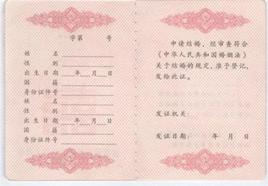 字第 号
姓 名
性 别
出生日期 年 月 日
国 籍
身份证件号
姓 名
性 别
出生日期 年 月 日
国 籍
身份证件号
申请结婚，经审查符合
《中华人民共和国婚姻法》
关于结婚的规定，准予登记，
发给此证。
发证机关：
发证日期： 年 月 日